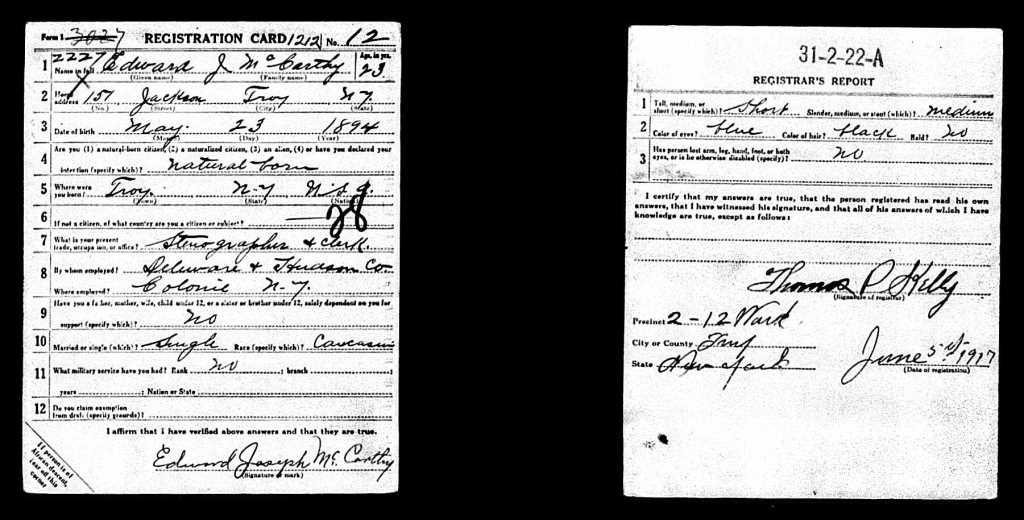 Form 1 3027 REGISTRATION CARD 1212 No. 12
1 2227 Edward J McCarthy Age, in yrs. 23
Name in full (Given name) (Family name)
2 Home address 157 Jackson Troy N.Y.
(No.) (Street) (City) (State)
3 Date of birth May 23 1894
(Month) (Day) (Year)
4 Are you (1) a natural-born citizen, (2) a naturalized citizen, (3) an alien, (4) or have you declared your
intention (specify which)? natural born
5 Where were you born? Troy N-Y U.S.A.
(Town) (State) (Nation)
28
6 If not a citizen, of what country are you a citizen or subject?
7 What is your present trade, occupation, or office? Stenographer & clerk.
8 By whom employed? Deleware & Hudson Co.
Where employed? Colonie N-Y.
9 Have you a father, mother, wife, child under 12, or a sister or brother under 12, solely dependent on you for
support (specify which)? No
10 Married or single (which)? Single Race (specify which)? Caucasian
11 What military service have you had? Rank no ; branch
years ; Nation or State
12 Do you claim exemption
from draft (specify grounds)?
I affirm that I have verified above answers and that they are true.
Edward Joseph McCarthy
(Signature or mark)
If person is of
African descent,
tear off this
corner
31-2-22-A
REGISTRAR'S REPORT
1 Tall, medium, or short (specify which)? Short Slender, medium, or stout (which)? medium
2 Color of eyes? blue Color of hair? black Bald? No
3 Has person lost arm, leg, hand, foot, or both
eyes, or is he otherwise disabled (specify)? No
I certify that my answers are true, that the person registered has read his own
answers, that I have witnessed his signature, and that all of his answers of which I have
knowledge are true, except as follows:
Thomas P Kelly
(Signature of registrar)
Precinct 2-12 Ward.
City or County Troy
State New York
June 5th 1917
(Date of registration)